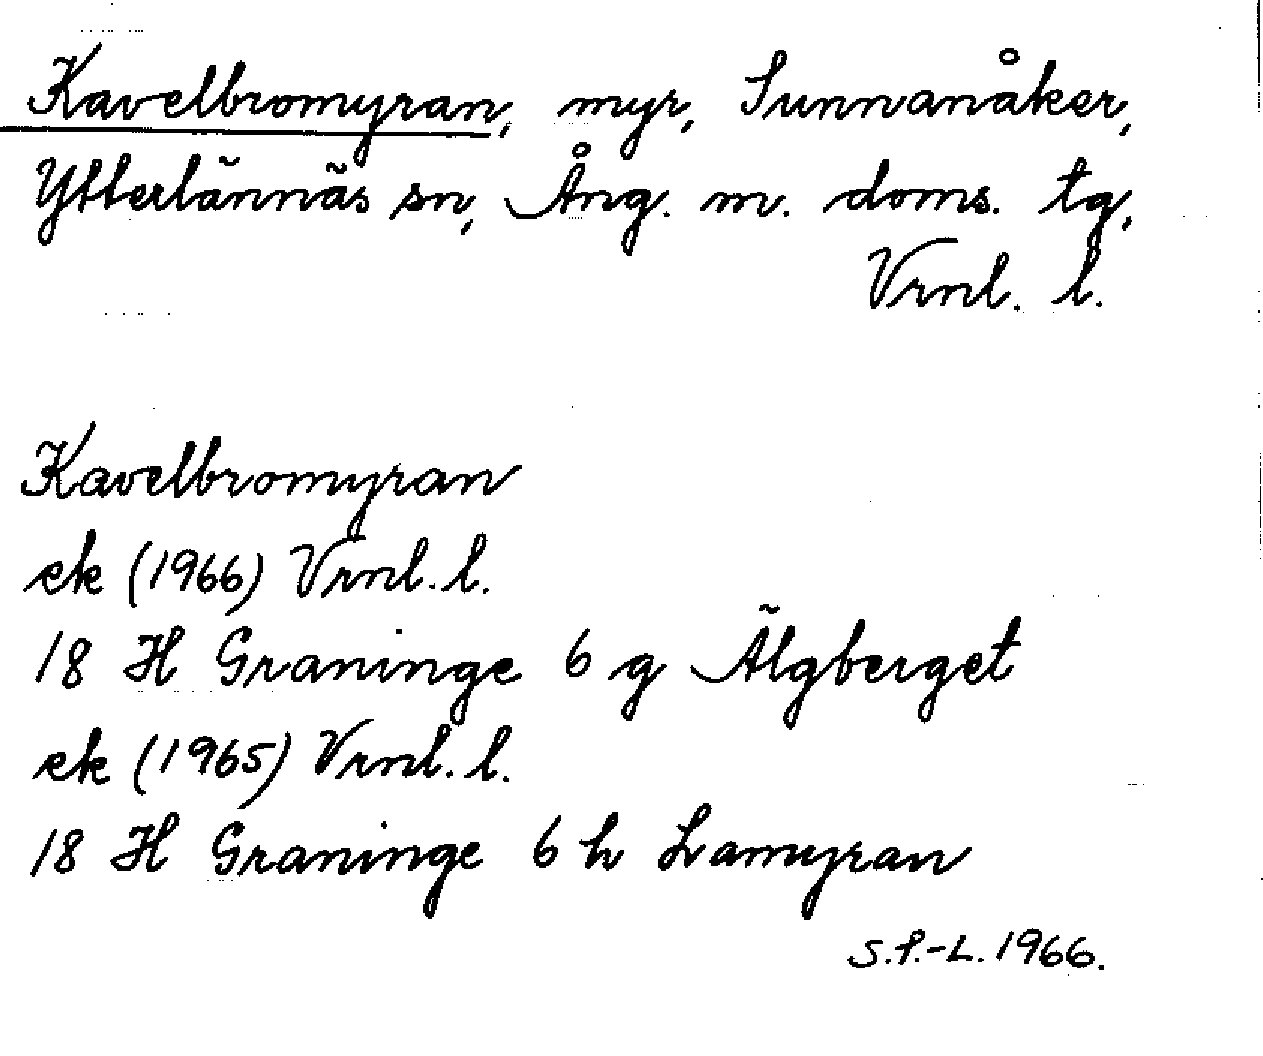 Kavelbromyran, myr, Sunnanåker,
Ytterlännäs sn, Ång. m. doms. tg,
Vrnl. l.
Kavelbromyran
ek (1966) Vrnl. l.
18 H Graninge 6 g Älgberget
ek (1965) Vrnl. l.
18 H Graninge 6 h Lamyran
S.P.-L. 1966.